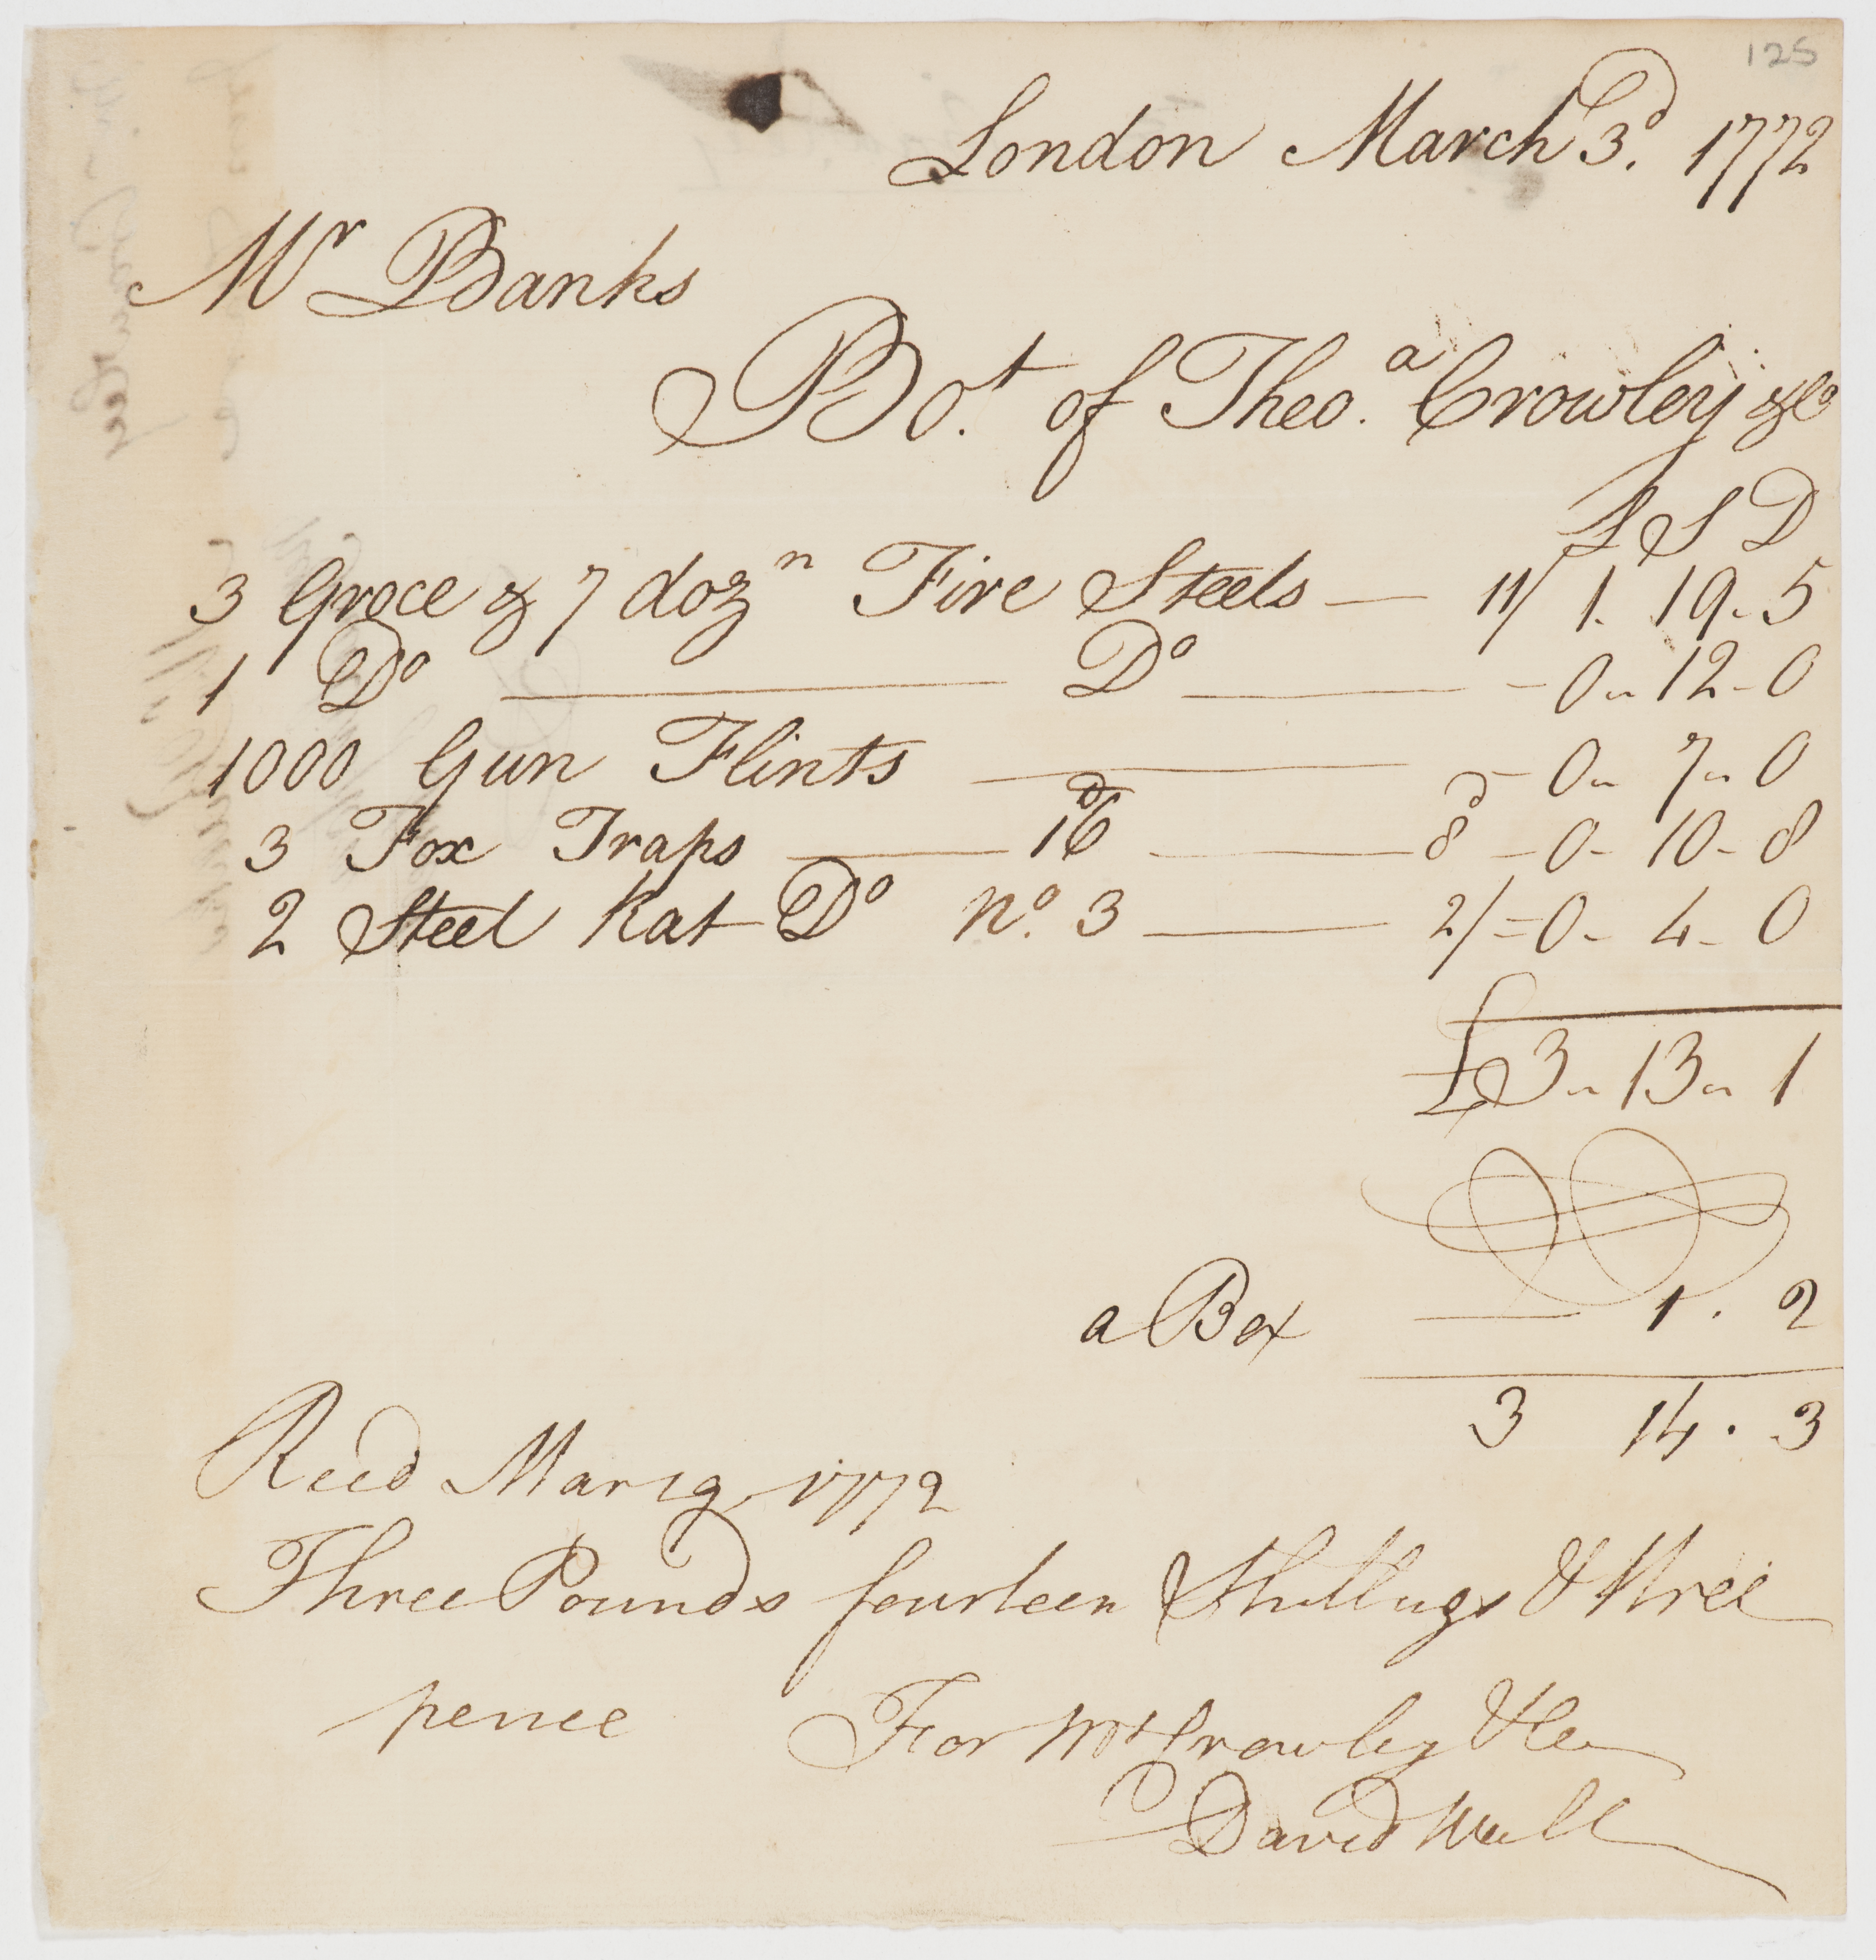 125
London March 3d. 1772
Mr Banks
Bot. of Theoa. Crowley & Co
£ S D
3 Groce & 7 dozn Fire Steels — 11/ 1. 19. 5
1 Do — Do — 0 - 12 - 0
1000 Gun Flints — 0 - 7 - 0
3 Fox Traps — 16d — 8d - 0 - 10 - 8
2 Steel Rat Do no. 3 — 2/ = 0 - 4 - 0
£3 - 13 - 1
a Box — 1 . 2
3 14 . 3
Recd Mar 19 1772
Three Pounds fourteen Shillings & three
pence For Mrs Crowley & Co
David